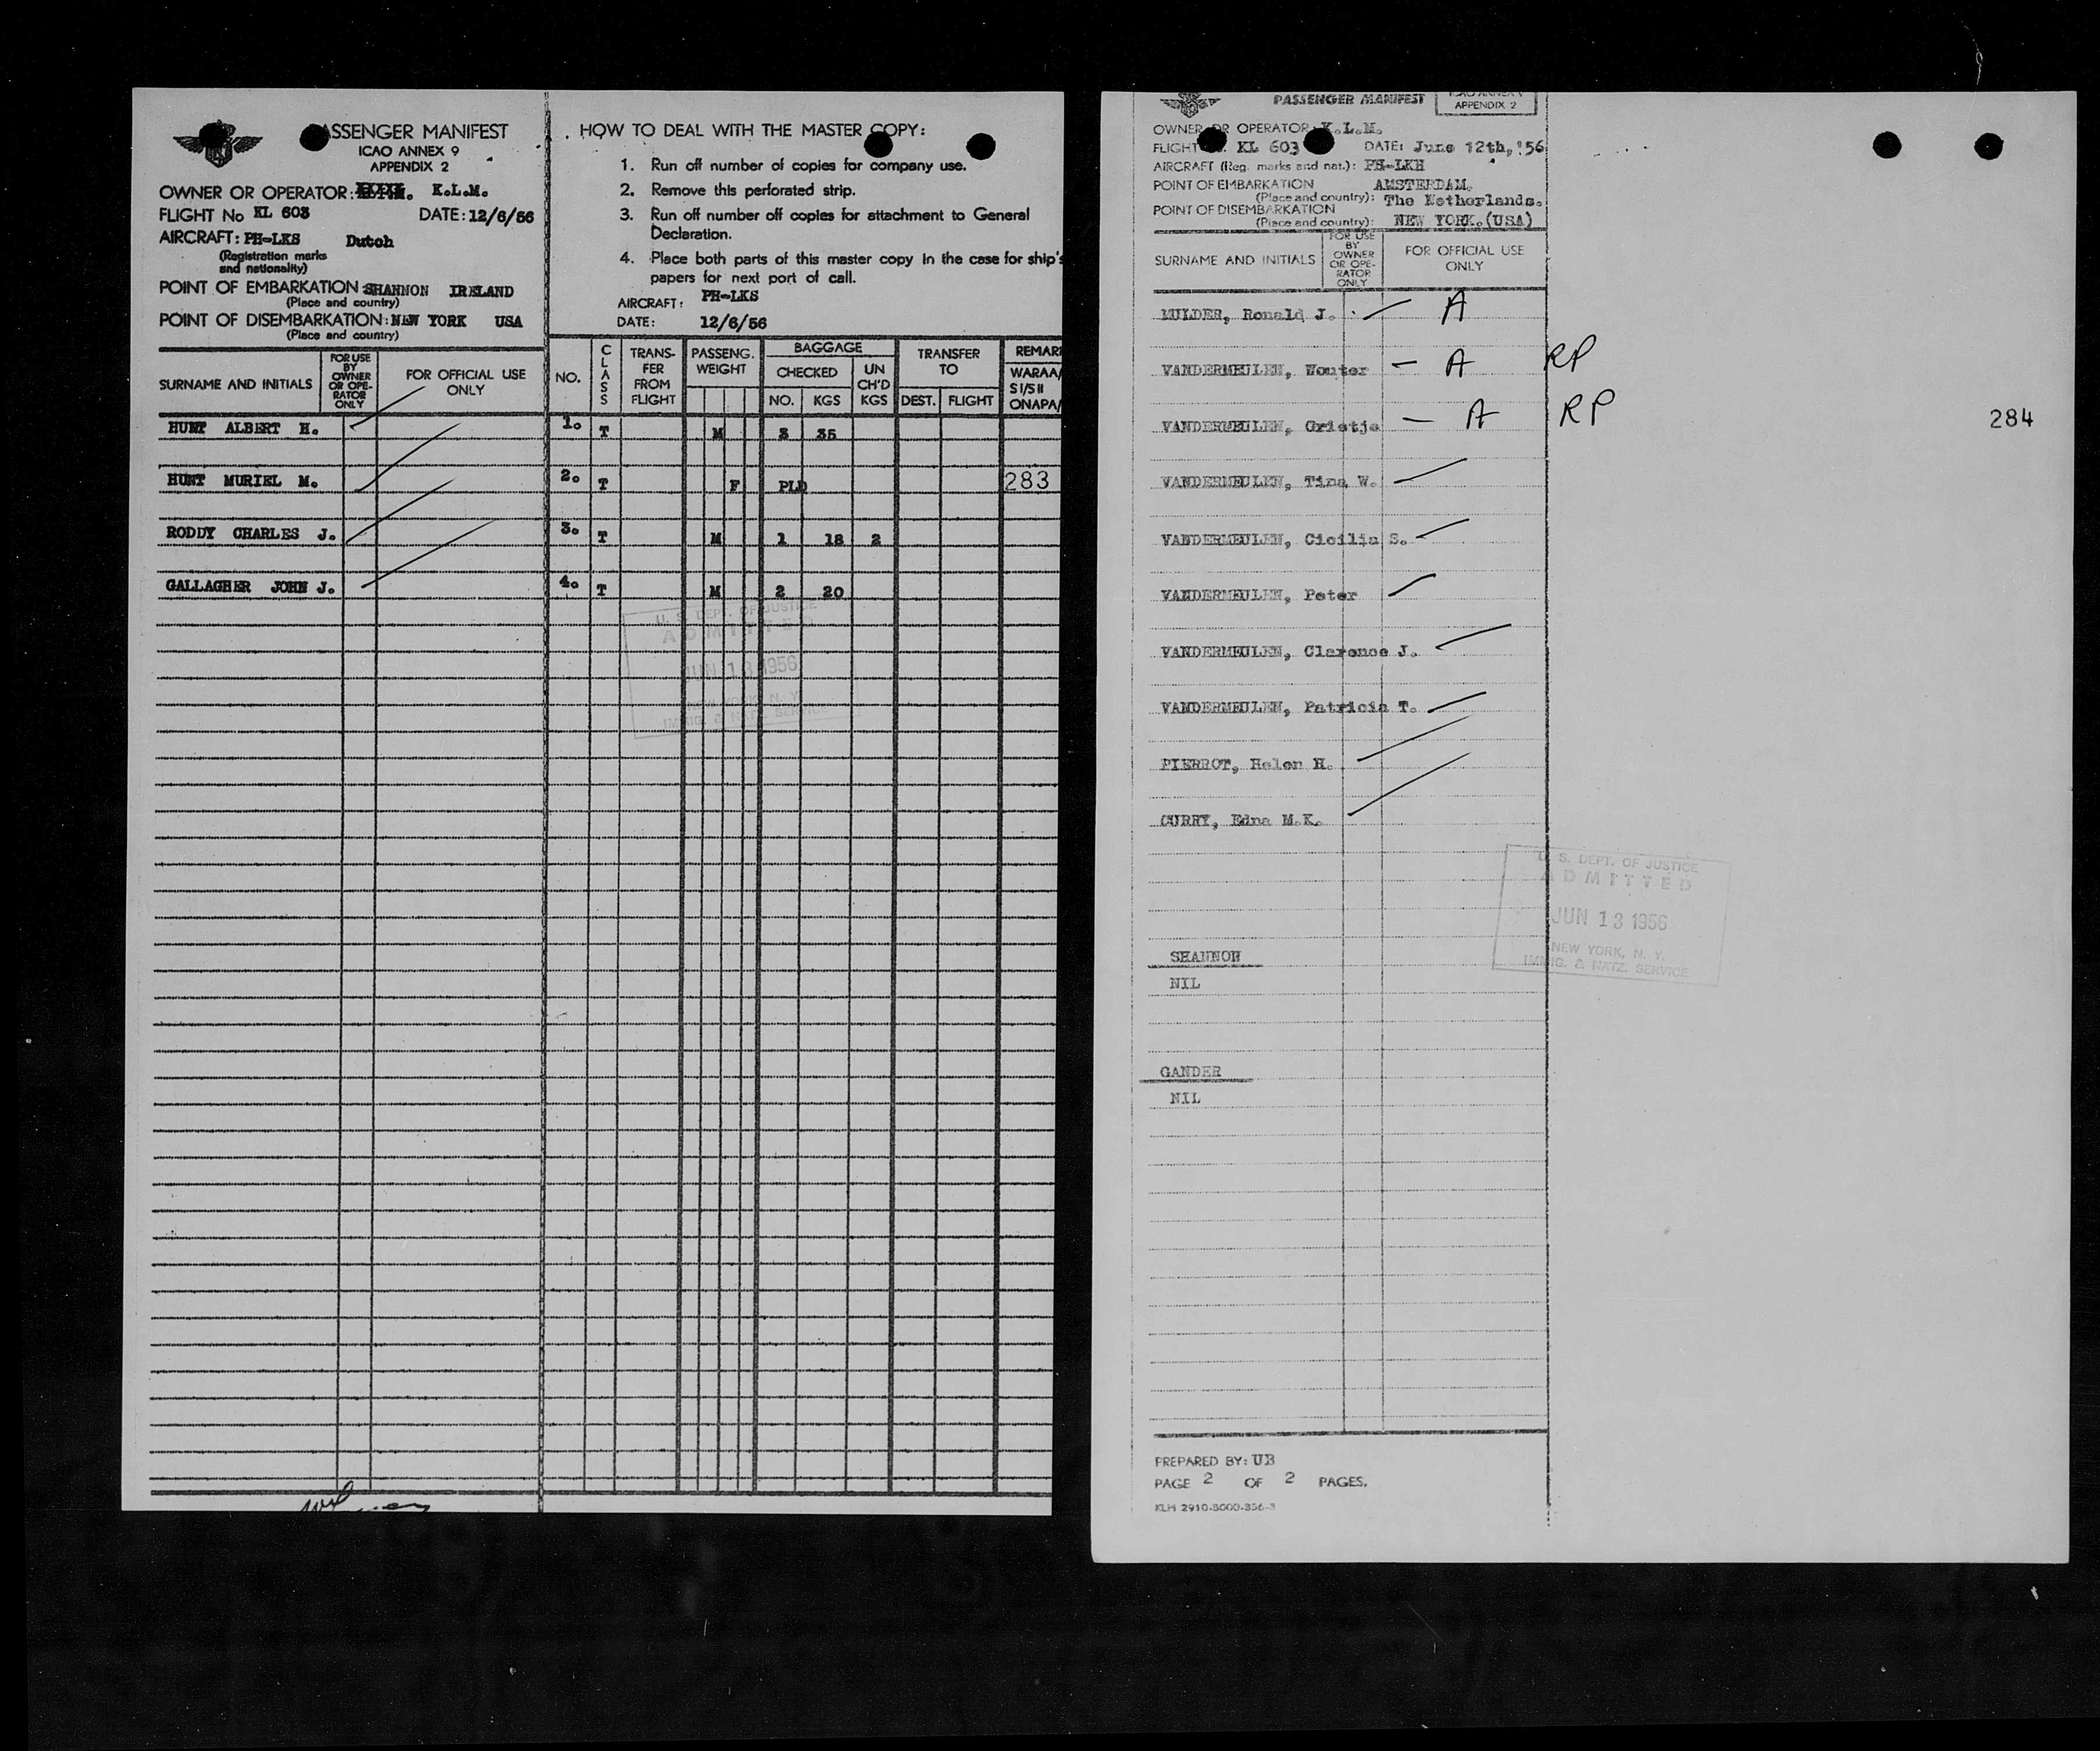 PASSENGER MANIFEST
ICAO ANNEX 9
APPENDIX 2
OWNER OR OPERATOR: K.L.M.
FLIGHT No KL 603 DATE: 12/6/56
AIRCRAFT: PH-LKS Dutch
(Registration marks
and nationality)
POINT OF EMBARKATION SHANNON IRELAND
(Place and country)
POINT OF DISEMBARKATION: NEW YORK USA
(Place and country)
SURNAME AND INITIALS
FOR USE
BY
OWNER
OR OPE-
RATOR
ONLY
FOR OFFICIAL USE
ONLY
HUNT ALBERT H.
HUNT MURIEL M.
RODDY CHARLES J.
GALLAGHER JOHN J.
HOW TO DEAL WITH THE MASTER COPY:
1. Run off number of copies for company use.
2. Remove this perforated strip.
3. Run off number off copies for attachment to General
Declaration.
4. Place both parts of this master copy in the case for ship's
papers for next port of call.
AIRCRAFT: PH-LKS
DATE: 12/6/56
NO.
CLASS
TRANS-
FER
FROM
FLIGHT
PASSENG.
WEIGHT
BAGGAGE
CHECKED
NO. KGS
UN
CH'D
KGS
TRANSFER
TO
DEST. FLIGHT
REMAR
WARAA/
SI/SII
ONAPA/
1. T M 3 35
2. T F PLD 283
3. T M 1 18 2
4. T M 2 20
U. S. DEPT. OF JUSTICE
ADMITTED
JUN 13 1956
NEW YORK, N. Y.
IMMIG. & NATZ. SERVICE
PASSENGER MANIFEST
ICAO ANNEX 9
APPENDIX 2
OWNER OR OPERATOR: K.L.M.
FLIGHT KL 603 DATE: June 12th,'56
AIRCRAFT (Reg. marks and nat.): PH-LKH
POINT OF EMBARKATION AMSTERDAM.
(Place and country): The Netherlands.
POINT OF DISEMBARKATION
(Place and country): NEW YORK.(USA)
SURNAME AND INITIALS
FOR USE
BY
OWNER
OR OPE-
RATOR
ONLY
FOR OFFICIAL USE
ONLY
MULDER, Ronald J. A
VANDERMEULEN, Wouter A RP
VANDERMEULEN, Grietje A RP
284
VANDERMEULEN, Tina W.
VANDERMEULEN, Cicilia S.
VANDERMEULEN, Peter
VANDERMEULEN, Clarence J.
VANDERMEULEN, Patricia T.
PIERROT, Helen H.
CURRY, Edna M.K.
U. S. DEPT. OF JUSTICE
ADMITTED
JUN 13 1956
NEW YORK, N. Y.
IMMIG. & NATZ. SERVICE
SHANNON
NIL
GANDER
NIL
PREPARED BY: UB
PAGE 2 OF 2 PAGES.